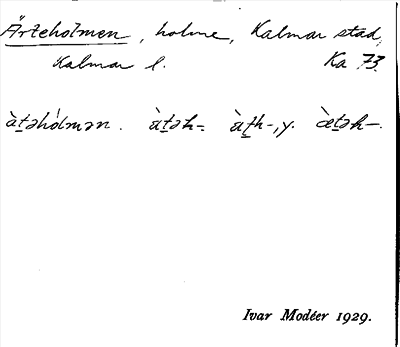 Ärteholmen, holme, Kalmar stad,
Kalmar l. Ka 73.
àt̠əhólmən. àt̠əh-. àt̠h-, y. æ̀t̠əh-.
Ivar Modéer 1929.